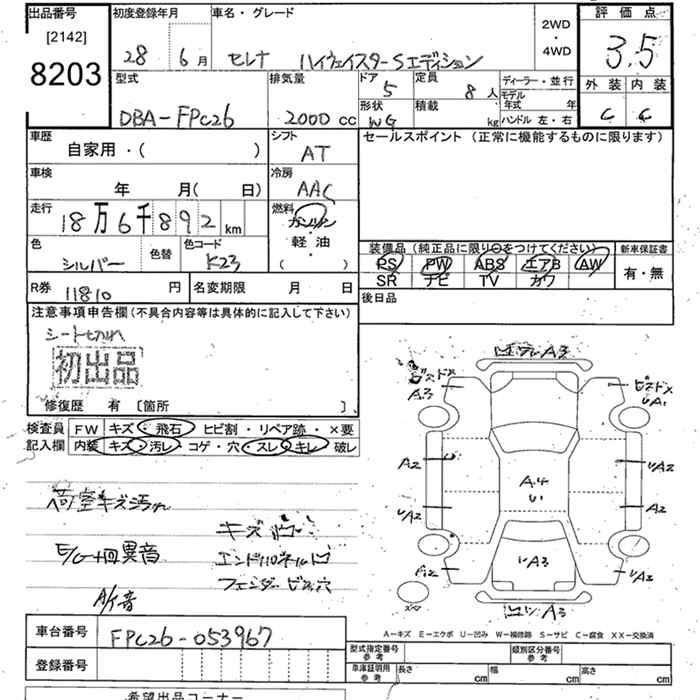 出品番号 初度登録年月 車名・グレード 2WD・4WD 評価点
[2142]
8203
28 6月 セレナ ハイウェイスターSエディション 3.5
型式 排気量 ドア 5 定員 8人 ディーラー・並行 外装 内装
DBA-FPC26 2000cc 形状 WG 積載 kg モデル年式 年 C C
ハンドル 左・右
車歴 シフト セールスポイント (正常に機能するものに限ります)
自家用・( ) AT
車検 冷房
年 月( 日) AAC
走行 燃料
18万6千892km ガソリン・軽油
( )
色 色替 色コード
シルバー K23
装備品 (純正品に限り○をつけてください) 新車保証書
PS PW ABS エアB AW 有・無
SR ナビ TV カワ
R券 11810円 名変期限 月 日
後日品
注意事項申告欄(不具合内容等は具体的に記入して下さい)
シート切れ
初出品
修復歴 有 [箇所 ]
検査員記入欄 FW キズ・飛石 ヒビ割・リペア跡・×要
内装 キズ・汚レ・コゲ・穴・スレ・キレ・破レ
荷室キズ汚れ
キズ
E/G 異音
エンドパネル凹
フェンダービス穴
A/C音
A3
A3
UA1
A2
UA2
UA2
A2
A4
U
UA3
A2
UA2
A3
A-キズ E-エクボ U-凹み W-補修跡 S-サビ C-腐食 XX-交換済
車台番号 FPC26-053967
登録番号
型式指定番号 参考 類別区分番号 参考
車庫証明用 参考 長さ cm 幅 cm 高さ cm
希望出品コーナー